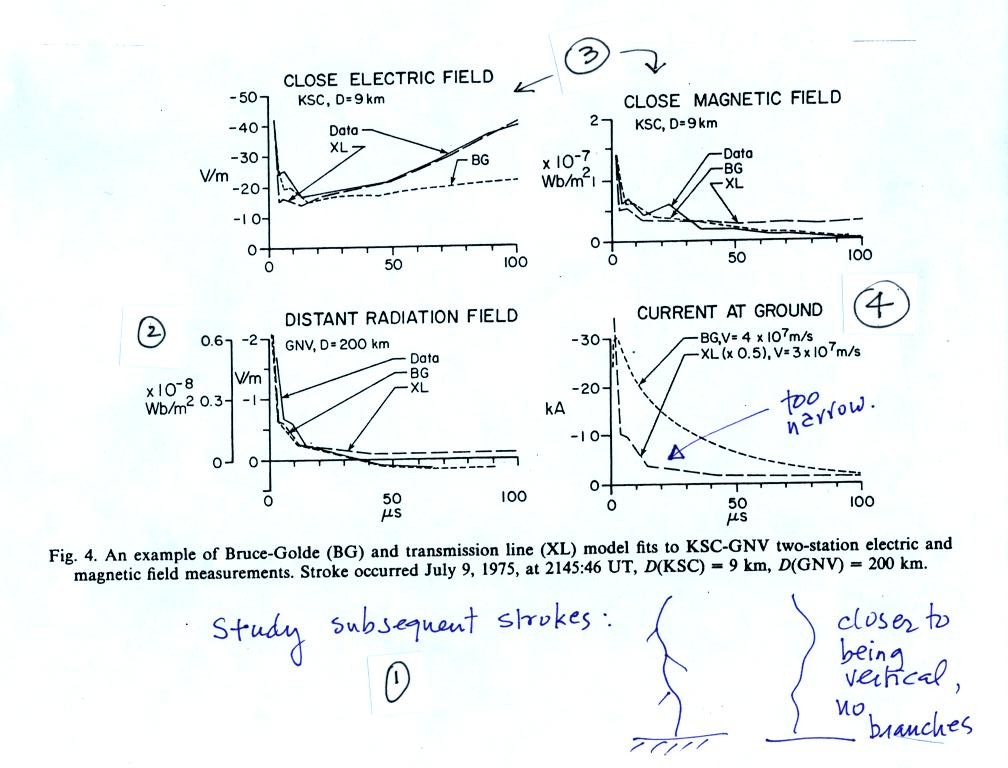 3
CLOSE ELECTRIC FIELD
KSC, D=9km
-50
-40
-30
-20
-10
0
V/m
Data
XL
BG
0
50
100
CLOSE MAGNETIC FIELD
KSC, D=9km
2
1
0
x 10-7
Wb/m2
Data
BG
XL
0
50
100
2
DISTANT RADIATION FIELD
GNV, D=200 km
0.6
0.3
0
x10-8
Wb/m2
-2
-1
0
V/m
Data
BG
XL
0
50
100
μs
4
CURRENT AT GROUND
BG,V= 4 x 107m/s
XL (x 0.5), V=3x107m/s
-30
-20
-10
0
kA
too
narrow.
0
50
100
μs
Fig. 4. An example of Bruce-Golde (BG) and transmission line (XL) model fits to KSC-GNV two-station electric and
magnetic field measurements. Stroke occurred July 9, 1975, at 2145:46 UT, D(KSC) = 9 km, D(GNV) = 200 km.
Study subsequent strokes :
1
closer to
being
vertical,
no
branches